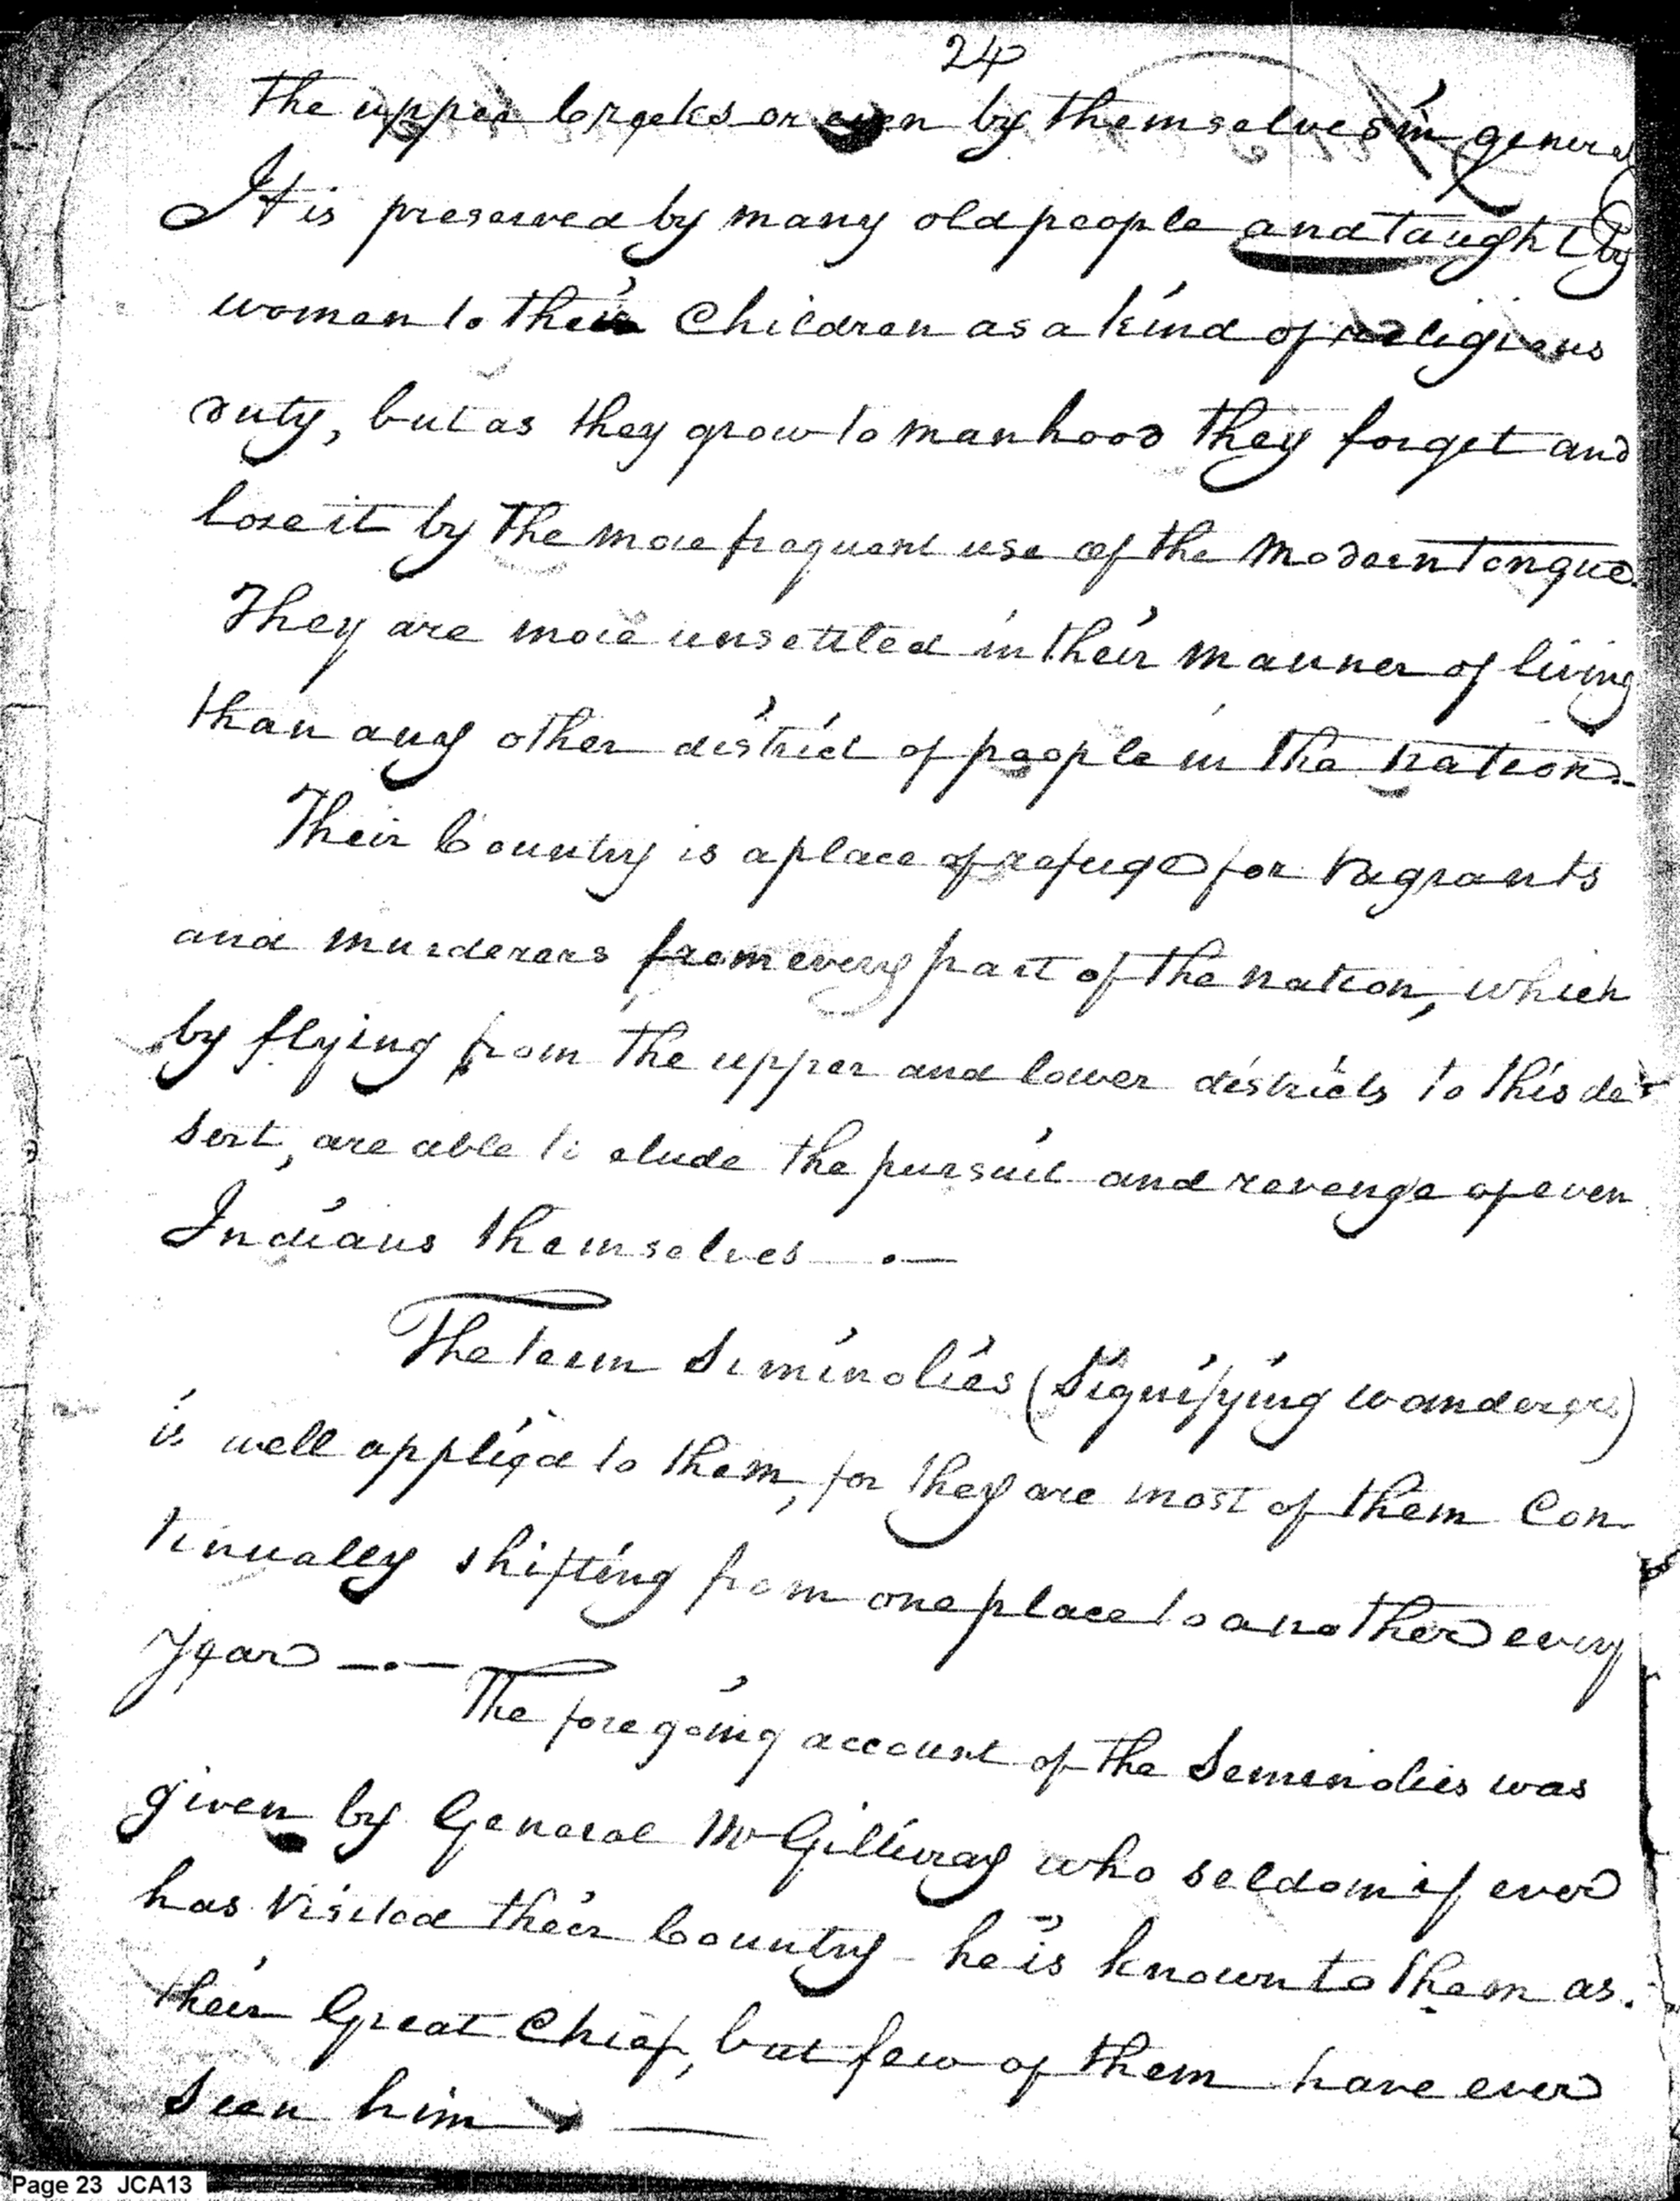 24
the upper Creeks or even by themselves in general
It is preserved by many old people and taught by
women to their Children as a kind of religious
duty, but as they grow to manhood they forget and
lose it by the more frequent use of the Modern tongue.
They are more unsettled in their manner of living
than any other district of people in the nation.
Their Country is a place of refuge for vagrants
and murderers from every part of the nation, which
by flying from the upper and lower districts to this de-
sert, are able to elude the pursuit and revenge of even
Indians themselves —.—
The term Siminolies (Signifying wanderers)
is well applied to them, for they are most of them Con-
tinually shifting from one place to another every
Year —.— The foregoing account of the Seminolies was
given by General McGillivray who seldom if ever
has Visited their Country – he is known to them as
their Great Chief, but few of them have ever
seen him —
Page 23 JCA13